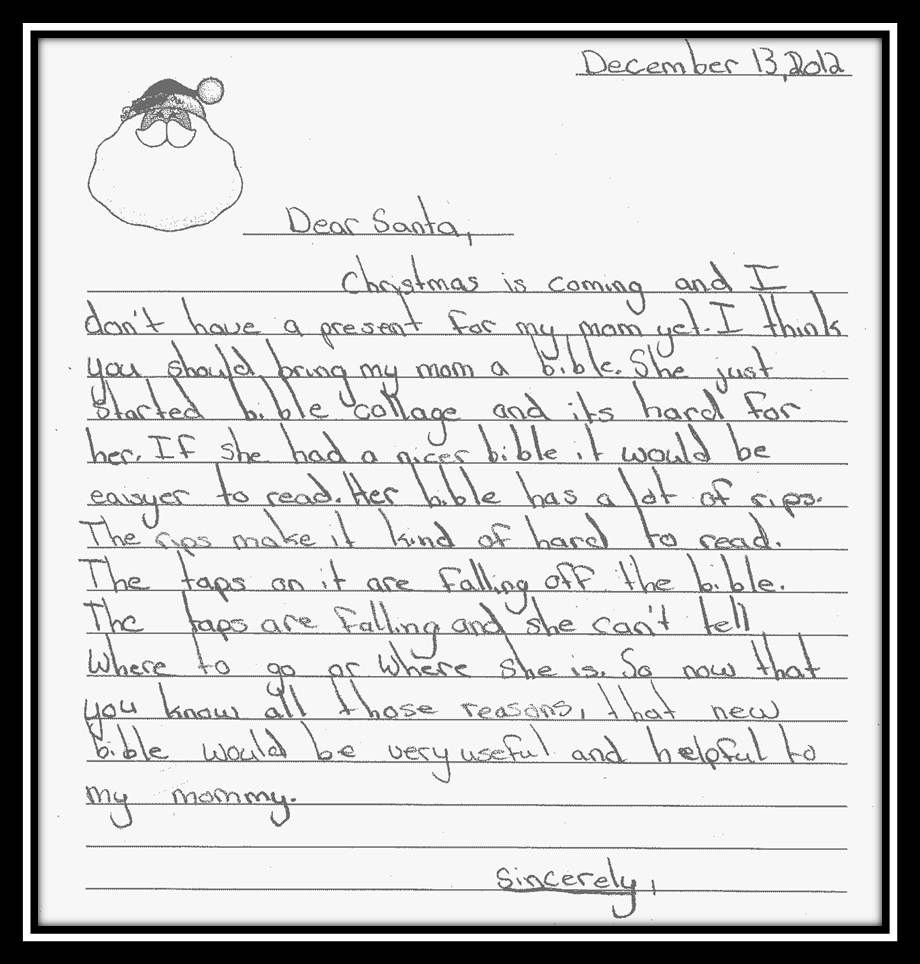 December 13, 2012
Dear Santa,
Christmas is coming and I
don't have a present for my mom yet. I think
you should bring my mom a bible. She just
started bible collage and its hard for
her. If she had a nicer bible it would be
eaisyer to read. Her bible has a lot of rips.
The rips make it kind of hard to read.
The taps on it are falling off the bible.
The taps are falling and she can't tell
where to go or where she is. So now that
you know all those reasons, that new
bible would be very useful and helpful to
my mommy.
Sincerely,